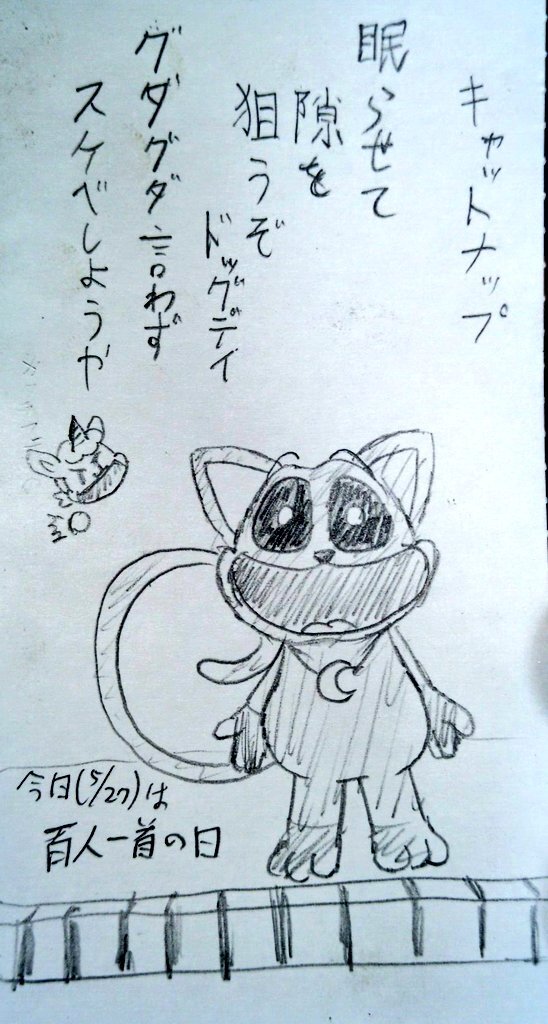 キャットナップ
眠らせて
隙を
狙うぞ
ドッグデイ
グダグダ言わず
スケベしようや
今日(5/27)は
百人一首の日